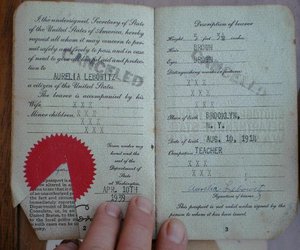 I the undersigned, Secretary of State
of the United States of America, hereby
request all whom it may concern to per-
mit safely and freely to pass, and in case
of need to give
tion to
AURELIA LEBOVITZ
a citizen of the United States.
The bearer is accompanied by his
Wife, XXX
XXX
Minor children, XXX
XXX
XXX
Given under my
hand and the
seal of the
Department of
State
at Washington,
APR. 10TH
1939
CANCELED
Description of bearer
Height 5 feet
Hair BROWN
Eyes
Distinguishing marks or features:
XXX
XXX
XXX
Place of birth BROOKLYN,
N. Y.
Date of birth AUG. 10, 1914
Occupation TEACHER
XXX
Aurelia Lebovitz
Signature of bearer.
This passport is not valid unless signed by the
person to whom it has been issued.
3